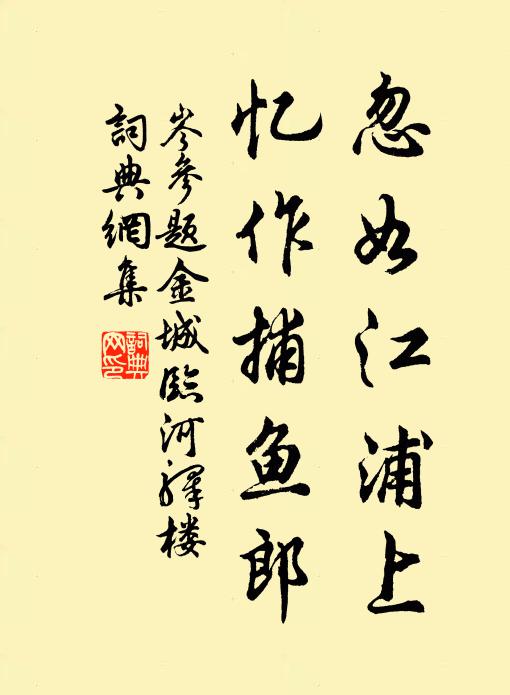 忽如江浦上
忆作捕鱼郎
岑参题金城臨河驛楼
詞典網集
詞典網印